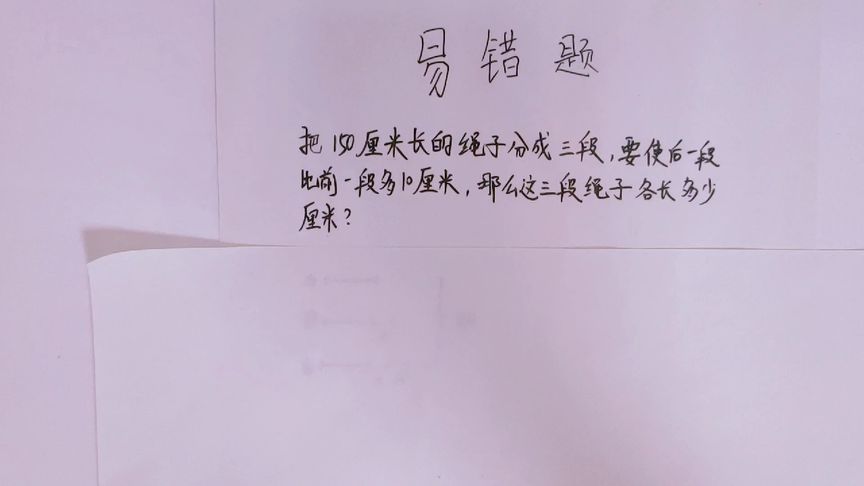 易错题
把150厘米长的绳子分成三段,要使后一段
比前一段多10厘米,那么这三段绳子各长多少
厘米?